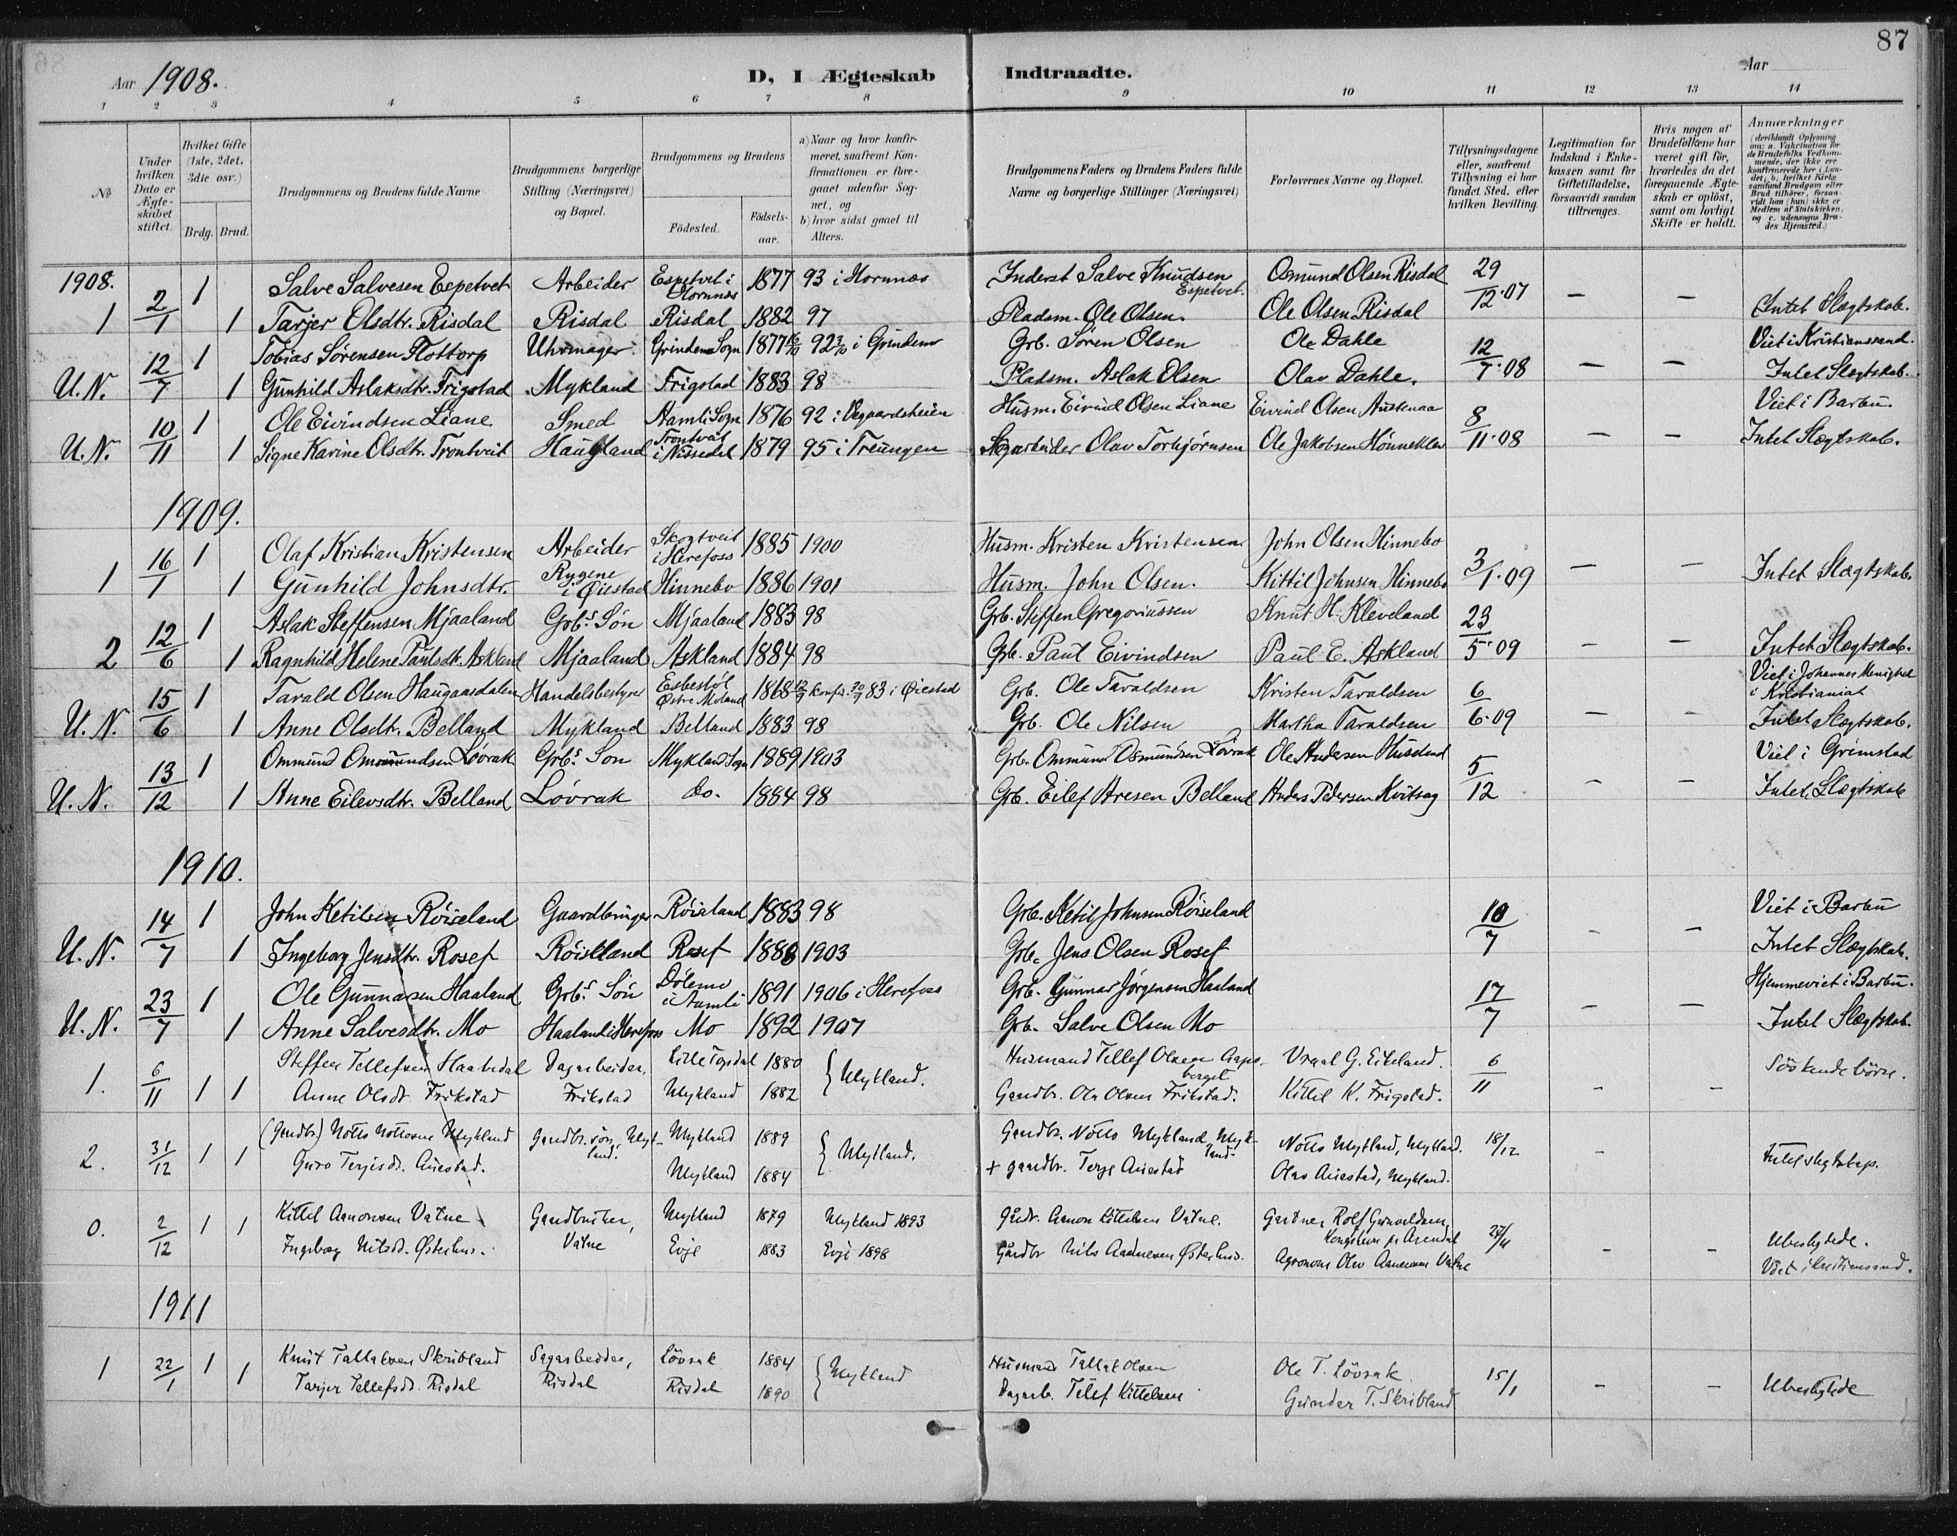 87
Aar 1908.
D, I Ægteskab Indtraadte.
Aar
1 2 3 4 5 6 7 8 9 10 11 12 13 14
No
Under hvilken Dato er Ægteskabet stiftet.
Hvilket Gifte (1ste, 2det, 3die osv.)
Brdg. Brud.
Brudgommens og Brudens fulde Navne
Brudgommens borgerlige Stilling (Næringsvei) og Bopæl.
Brudgommens og Brudens
Födested. Födselsaar.
a) Naar og hvor konfirmeret, saafremt Konfirmationen er foregaaet udenfor Sognet, og
b) hvor sidst gaaet til Alters.
Brudgommens Faders og Brudens Faders fulde Navne og borgerlige Stillinger (Næringsvei)
Forlovernes Navne og Bopæl.
Tillysningsdagene eller, saafremt Tillysning ei har fundet Sted, efter hvilken Bevilling.
Legitimation for Indskud i Enkekassen samt for Giftetilladelse, forsaavidt saadan tiltrænges.
Hvis nogen af Brudefolkene har været gift för, hvorledes da det foregaaende Ægteskab er oplöst, samt om lovligt Skifte er holdt.
Anmærkninger (deriblandt Oplysning om: a. Vakcination for de Brudefolks Vedkommende, der ikke ere konfirmerede her i Landet; b. hvilket Kirkesamfund Brudgom eller Brud tilhörer, forsaavidt han (hun) ikke er Medlem af Statskirken, og c. udensogns Brudes Hjemsted.)
1908.
1 2/1 1 Salve Salvesen Espetvet Arbeider Espetvet i Hornnæs 1877 93 i Hornnæs Inderst Salve Knudsen Espetvet. Osmund Olsen Risdal 29/12·07 — —
1 Tarjer Olsdtr. Risdal Risdal Risdal 1882 97 Pladsm. Ole Olsen. Ole Olsen Risdal Intet Slægtskab.
U.N. 12/7 1 Tobias Sørensen Flottorp Uhrmager Grindem Sogn 1877 92 i Grindem Grb. Søren Olsen Ole Dahle 12/7·08 — — Viet i Kristianssand.
1 Gunhild Aslaksdtr. Frigstad Mykland Frigstad 1883 98 Pladsm. Aslak Olsen Olav Dahle. Intet Slægtskab.
U.N. 10/11 1 Ole Eivindsen Liane Smed Aamli Sogn 1876 92 i Vegaardsheien Husm. Eivind Olsen Liane Eivind Olsen Austenaa 8/11·08 — — Viet i Barbu.
1 Signe Karine Olsdtr. Trontveit Haugland Trontveit i Nissedal 1879 95 i Treungen Olav Torbjørnsen Ole Jakobsen Intet Slægtskab.
1909.
1 16/1 1 Olaf Kristian Kristensen Arbeider Skogtveit i Herefoss 1885 1900 Husm. Kristen Kristensen John Olsen Hinnebo 3/1·09 — —
1 Gunhild Johnsdtr. Rygene i Øiestad Hinnebo 1886 1901 Husm. John Olsen. Kittil Johnsen Hinnebo Intet Slægtskab.
2 12/6 1 Aslak Steffensen Mjaaland Grb.s Søn Mjaaland 1883 98 Grb. Steffen Gregoriussen Knut H. Kleveland 23/5·09 — —
1 Ragnhild Helene Paulsdtr. Askland Mjaaland Askland 1884 98 Grb. Paul Eivindsen Paul E. Askland Intet Slægtskab.
U.N. 15/6 1 Tarald Olsen Haugaasdalen Handelsbestyrer Esbestøl Østre Moland 1868 konf. 83 i Øiestad Grb. Ole Taraldsen Kristen Taraldsen 6/6·09 — — Viet i Johannes Menighed i Kristiania
1 Anne Olsdtr. Belland Mykland Belland 1883 98 Grb. Ole Nilsen Martha Taraldsen Intet Slægtskab.
U.N. 13/12 1 Ommund Ommundsen Løvrak Grb.s Søn Mykland Sogn 1889 1903 Grb. Ommund Osmundsen Løvrak Ole Andersen 5/12 — — Viet i Grimstad
1 Anne Eilevsdtr. Belland Løvrak do. 1884 98 Grb. Eilef Aresen Belland Anders Pedersen Intet Slægtskab
1910.
U.N. 14/7 1 John Ketilsen Røiseland Gaardbruger Røiseland 1883 98 Grb. Ketil Johnsen Røiseland 10/7 — — Viet i Barbu
1 Ingeborg Jensdtr. Rosef Røiseland Rosef 1888 1903 Grb. Jens Olsen Rosef Intet Slægtskab.
U.N. 23/7 1 Ole Gunnarsen Haaland Grb.s Søn Dølemo i Aamli 1891 1906 i Herefoss Grb. Gunnar Jørgensen Haaland 17/7 — — Hjemmeviet i Barbu.
1 Anne Salvesdtr. Mo Haaland i Herefoss Mo 1892 1907 Grb. Salve Olsen Mo Intet Slægtskab.
1. 6/11 1 1 Steffen Tellefsen Haabedal Dagarbeider, Lille Topdal 1880 } Mykland. Husmand Tellef Olsen Vraal G. Eikeland. 6/11 - - Söskendebörn.
Anne Olsdr Frikstad Frikstad Mykland 1882 Gaardbr. Ole Olsen Frikstad. Kittil K. Frigstad.
2. 31/12 1 1 (Gaardbr.) Notto Nottosen Mykland Gaardbr. søn, Mykland. Mykland 1889 } Mykland. Gaardbr. Notto Mykland, Mykland Notto Mykland, Mykland. 18/12 -
Guro Terjesd. Aiestad. Mykland 1884 + gaardbr. Terje Aiestad Olav Aiestad, Mykland. Intet slegtskap.
0. 2/12 1 1 Kittel Aanonsen Vatne Gaardbruker, Vatne Mykland 1879 Mykland 1893 Gårdr. Aanon Kittelsen Vatne. Gartner Rolf pr Arendal 27/11 - -
Ingeborg Nilsd. Østerhus. Evje 1883 Evje 1898 Gårdbr Nils Aadnesen Østerhus. Agronom Olav Aanonsen Vatne Ubeslegtede. Viet i Kristianssand.
1911
1 22/1 1 1 Knut Tallaksen Skribland Sagarbeider, Risdal Lövrak 1884 } Mykland Husmand Tallak Olsen Ole T. Lövrak 15/1 - -
Tarjer Tellefsd. Risdal Risdal 1890 Dagarb. Tellef Kittelsen Gunder T. Skribland Ubeslegtede